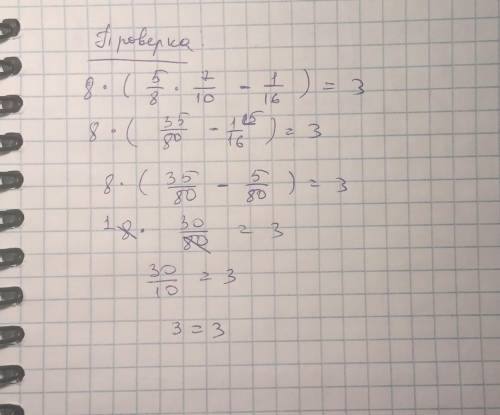 Проверка:
8 · ( 5/8 · 7/10 - 1/16 ) = 3
8 · ( 35/80 - 1/16 ^5 ) = 3
8 · ( 35/80 - 5/80 ) = 3
1 8 · 30/80 = 3
30/10 = 3
3 = 3